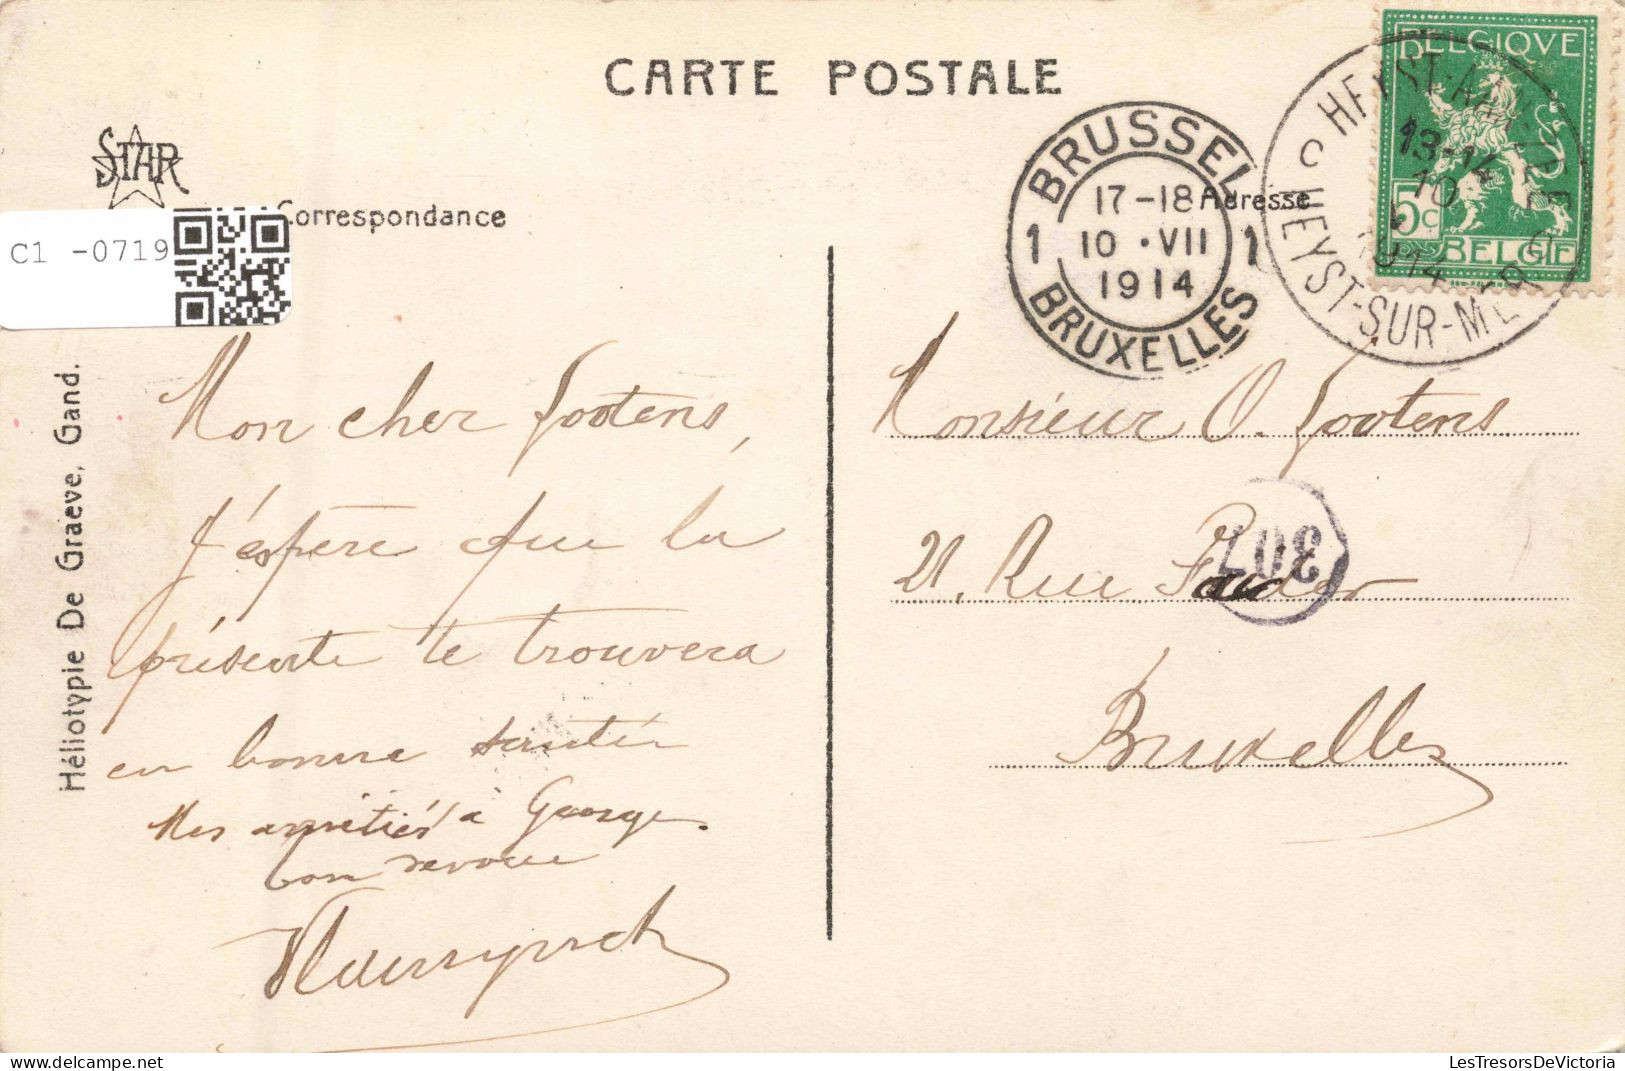 CARTE POSTALE
STAR
Correspondance
Adresse
C1 -0719
BRUSSEL
1 17-18 1
10 • VII
1914
BRUXELLES
BELGIQVE
5c
BELGIË
HEYST-AAN-ZEE
13-14
10
1914
HEYST-SUR-MER
Héliotypie De Graeve, Gand.
Mon cher Gootens,
J'éspère que la
présente te trouvera
en bonne santée
Mes amitiés à George.
bon revoir
Monsieur O. Gootens
21, Rue
307
Bruxelles
LesTresorsDeVictoria.com